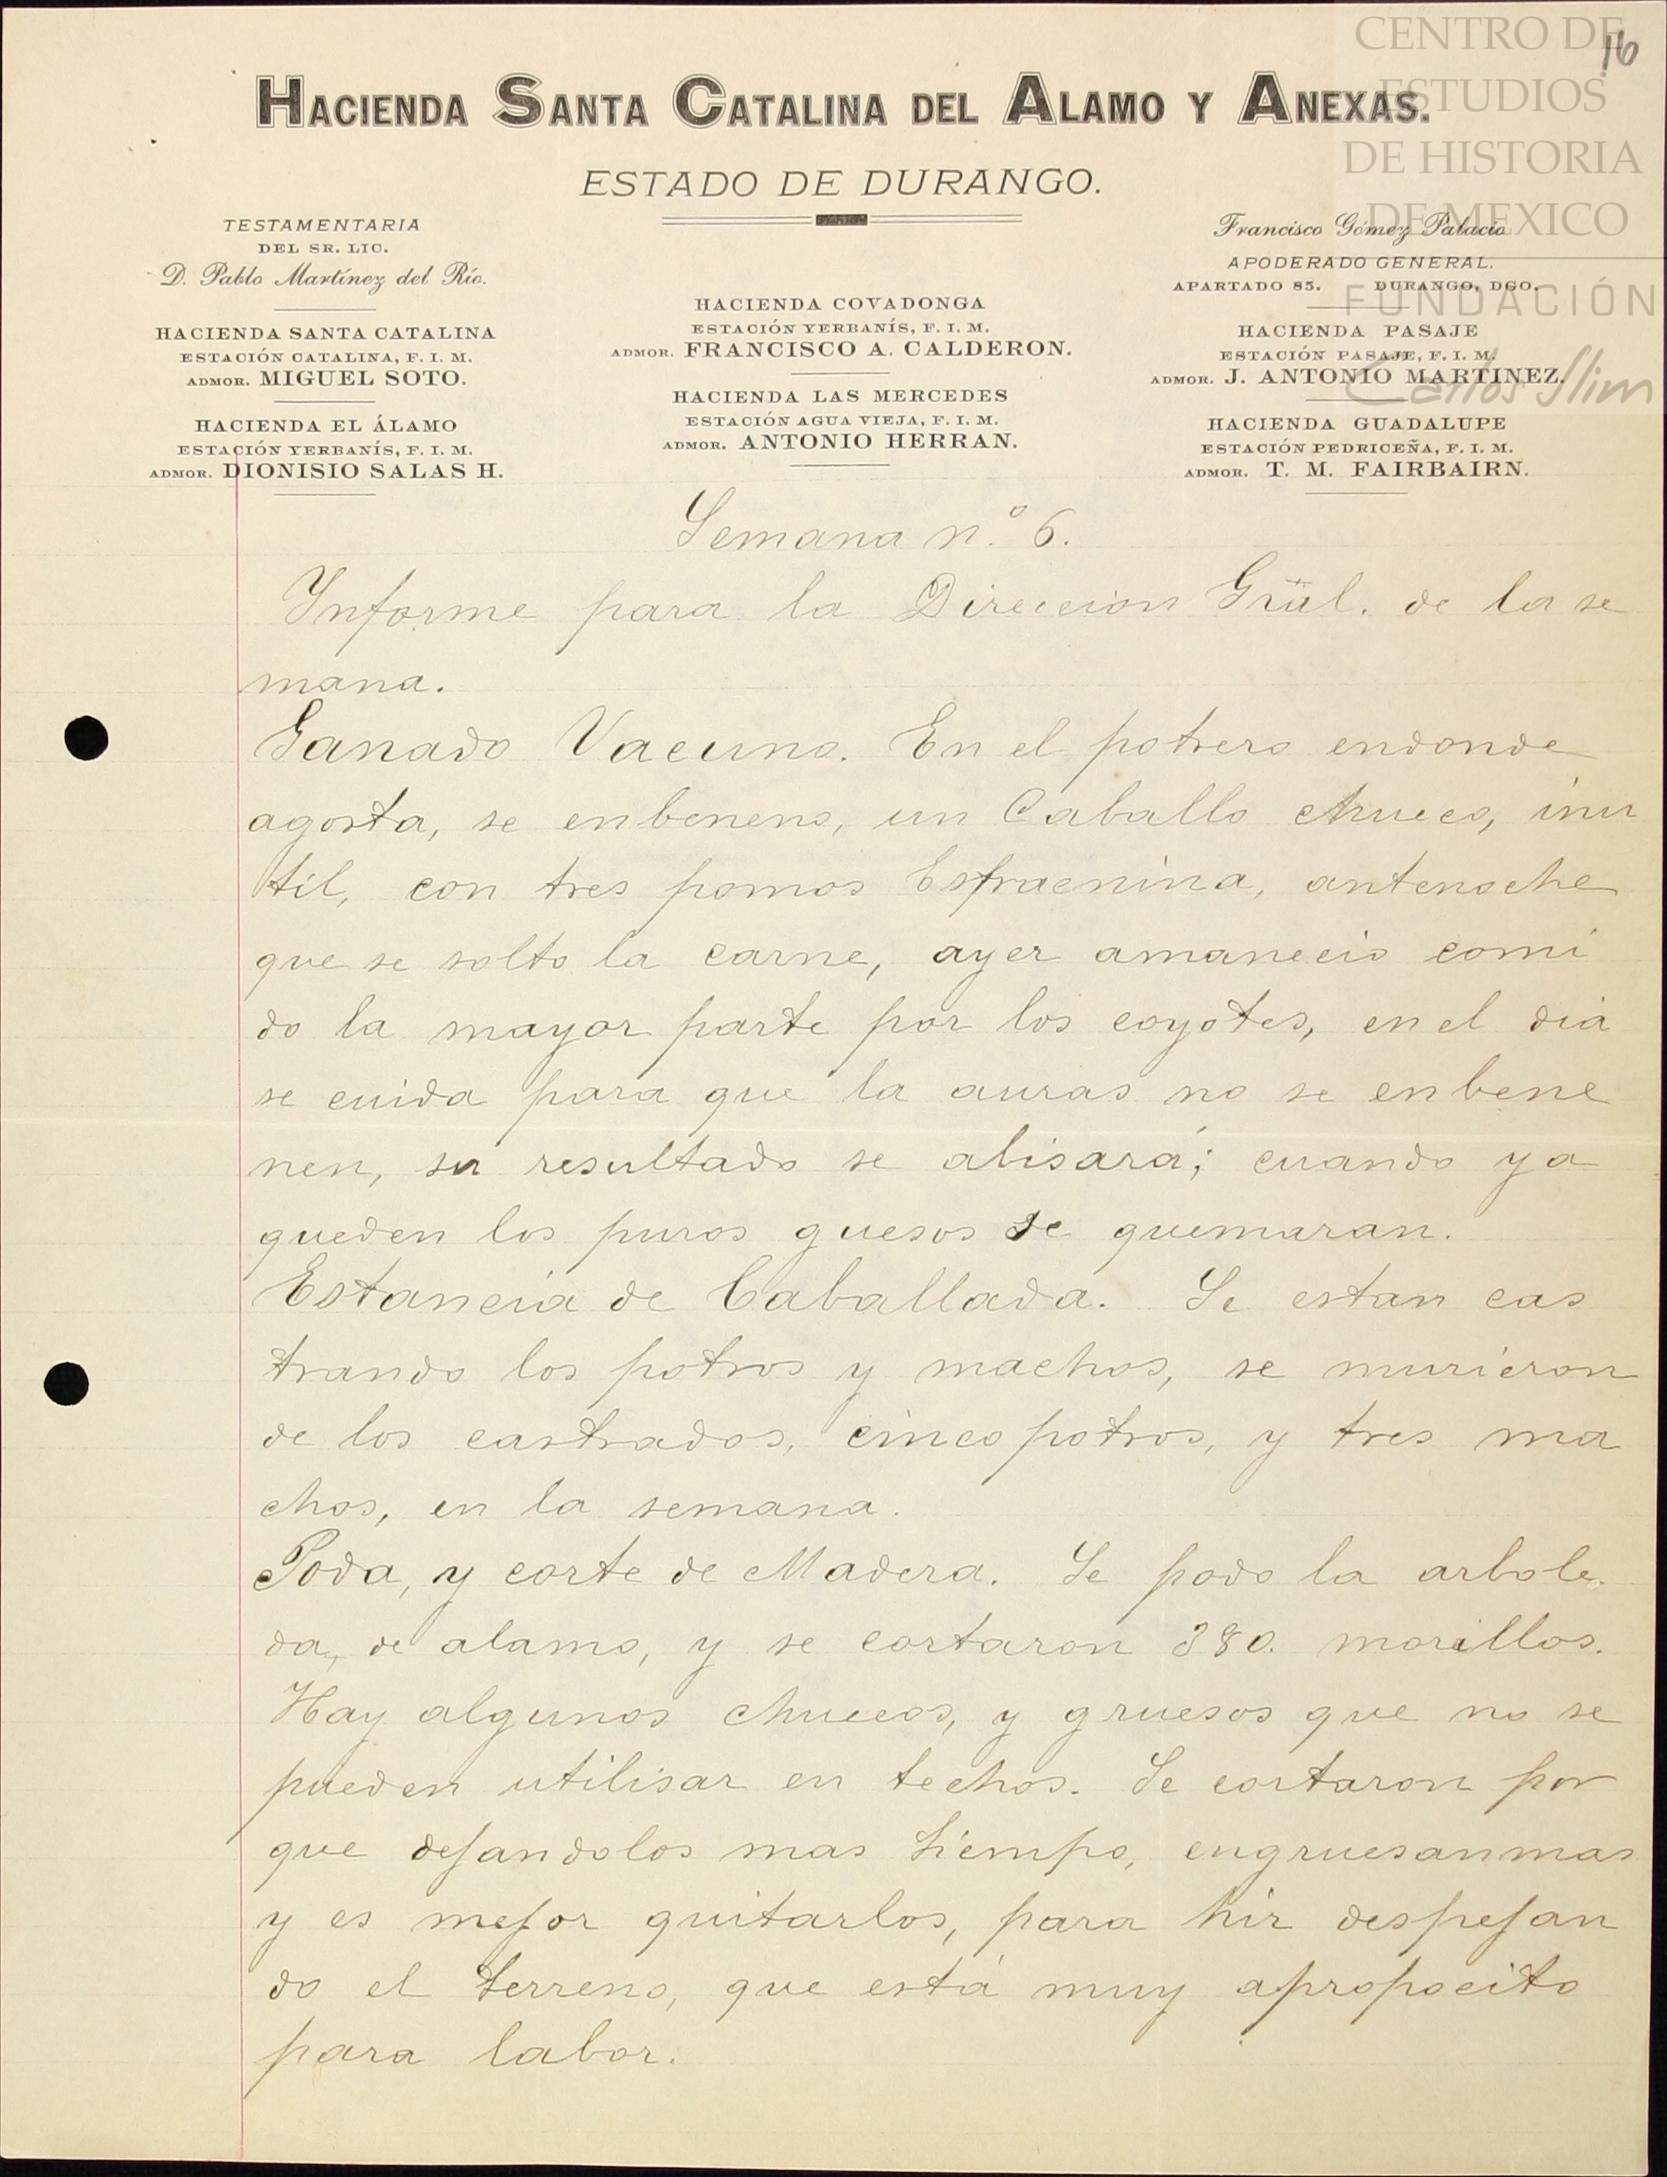 CENTRO DE
ESTUDIOS
DE HISTORIA
DE MEXICO
FUNDACIÓN
Carlos Slim
16
HACIENDA SANTA CATALINA DEL ALAMO Y ANEXAS.
ESTADO DE DURANGO.
TESTAMENTARIA
DEL SR. LIC.
D. Pablo Martínez del Río.
HACIENDA SANTA CATALINA
ESTACIÓN CATALINA, F. I. M.
ADMOR. MIGUEL SOTO.
HACIENDA EL ÁLAMO
ESTACIÓN YERBANÍS, F. I. M.
ADMOR. DIONISIO SALAS H.
HACIENDA COVADONGA
ESTACIÓN YERBANÍS, F. I. M.
ADMOR. FRANCISCO A. CALDERON.
HACIENDA LAS MERCEDES
ESTACIÓN AGUA VIEJA, F. I. M.
ADMOR. ANTONIO HERRAN.
Francisco Gómez Palacio
APODERADO GENERAL.
APARTADO 85. DURANGO, DGO.
HACIENDA PASAJE
ESTACIÓN PASAJE, F. I. M.
ADMOR. J. ANTONIO MARTINEZ.
HACIENDA GUADALUPE
ESTACIÓN PEDRICEÑA, F. I. M.
ADMOR. T. M. FAIRBAIRN.
Semana n.º 6.
Ynforme para la Direccion Gräl. de la se
mana.
Ganado Vacuno. En el potrero endonde
agosta, se enbeneno, un Caballo chueco, inu
til, con tres pomos Estracnina, antenoche
que se solto la carne, ayer amanecio comi
do la mayor parte por los coyotes, en el dia
se cuida para que la auras no se enbene
nen, su resultado se abisará; cuando ya
queden los puros guesos se quemaran.
Estancia de Caballada. Se estan cas
trando los potros y machos, se murieron
de los castrados, cinco potros, y tres ma
chos, en la semana.
Poda, y corte de Madera. Se podo la arbole
da, de alamo, y se cortaron 380. morillos.
Hay algunos chuecos, y gruesos que no se
pueden utilisar en techos. Se cortaron por
que dejandolos mas tiempo, engruesan mas
y es mejor quitarlos, para hir despejan
do el terreno, que está muy apropocito
para labor.